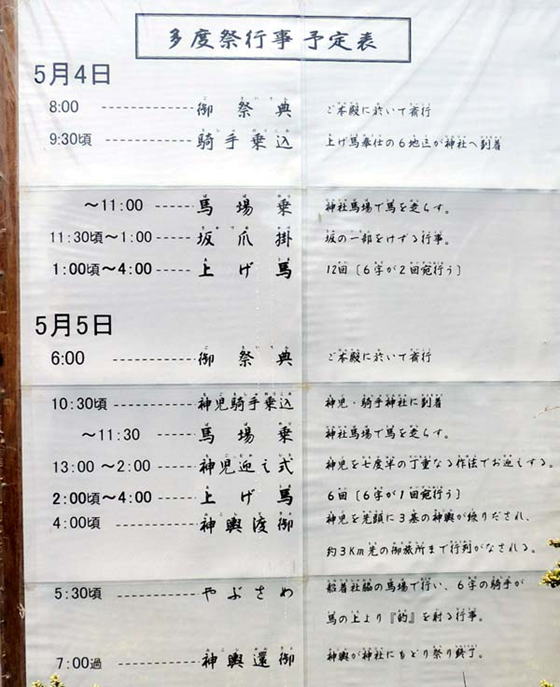 多度祭行事予定表
5月4日
8:00 ---------- 御祭典 ご本殿に於いて斎行
9:30頃 ---------- 騎手乗込 上げ馬奉仕の6地区が神社へ到着
〜11:00 ----- 馬場乗 神社馬場で馬を走らす。
11:30頃〜1:00 ----- 坂爪掛 坂の一部をけずる行事。
1:00頃〜4:00 ----- 上げ馬 12回〔6字が2回宛行う〕
5月5日
6:00 ---------- 御祭典 ご本殿に於いて斎行
10:30頃 ---------- 神児騎手乗込 神児・騎手神社に到着
〜11:30 ----- 馬場乗 神社馬場で馬を走らす。
13:00 〜2:00 ----- 神児迎え式 神児を七度半の丁重なる作法でお迎えする。
2:00頃〜4:00 ----- 上げ馬 6回〔6字が1回宛行う〕
4:00頃 ---------- 神輿渡御 神児を先頭に3基の神輿が繰りだされ、
約3Km先の御旅所まで行列がなされる。
5:30頃 ---------- やぶさめ 船着社脇の馬場で行い、6字の騎手が
馬の上より『的』を射る行事。
7:00過 ---------- 神輿還御 神輿が神社にもどり祭り終了。